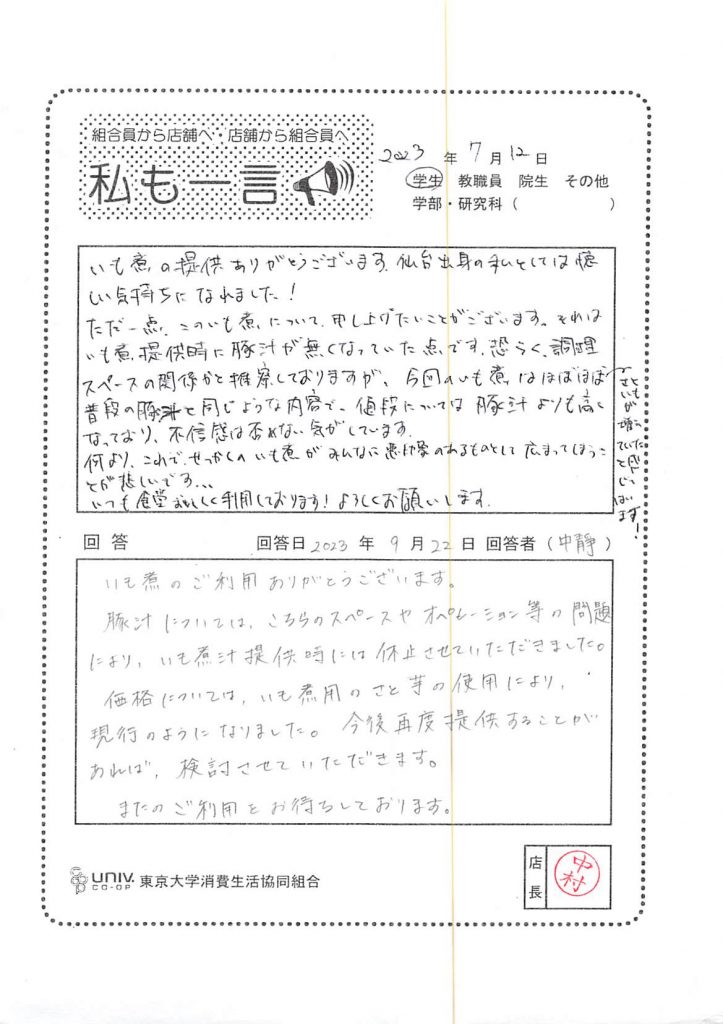 組合員から店舗へ・店舗から組合員へ
私も一言
2023 年 7 月 12 日
学生 教職員 院生 その他
学部・研究科 ( )
いも煮の提供ありがとうございます。仙台出身の私としては懐し
い気持ちになれました！
ただ一点、このいも煮について、申し上げたいことがございます。それは
いも煮提供時に豚汁が無くなっていた点です。恐らく、調理
スペースの関係かと推察しておりますが、今回のいも煮はほぼほぼ
普段の豚汁と同じような内容で、値段については豚汁よりも高く
なっており、不信感は否めない気がしています。
何より、これで、せっかくのいも煮がみんなに悪印象のあるものとして広まってしまうこ
とが悲しいです...
いつも食堂 楽しく利用しております！よろしくお願いします。
さといもが
回答 回答日 2023 年 9 月 22 日 回答者 (中静)
いも煮のご利用ありがとうございます。
豚汁については、こちらのスペースやオペレーション等の問題
により、いも煮汁提供時には休止させていただきました。
価格については、いも煮用のさと芋の使用により、
現行のようになりました。今後再度提供することが
あれば、検討させていただきます。
またのご利用をお待ちしております。
UNIV. CO-OP 東京大学消費生活協同組合
店長
中村